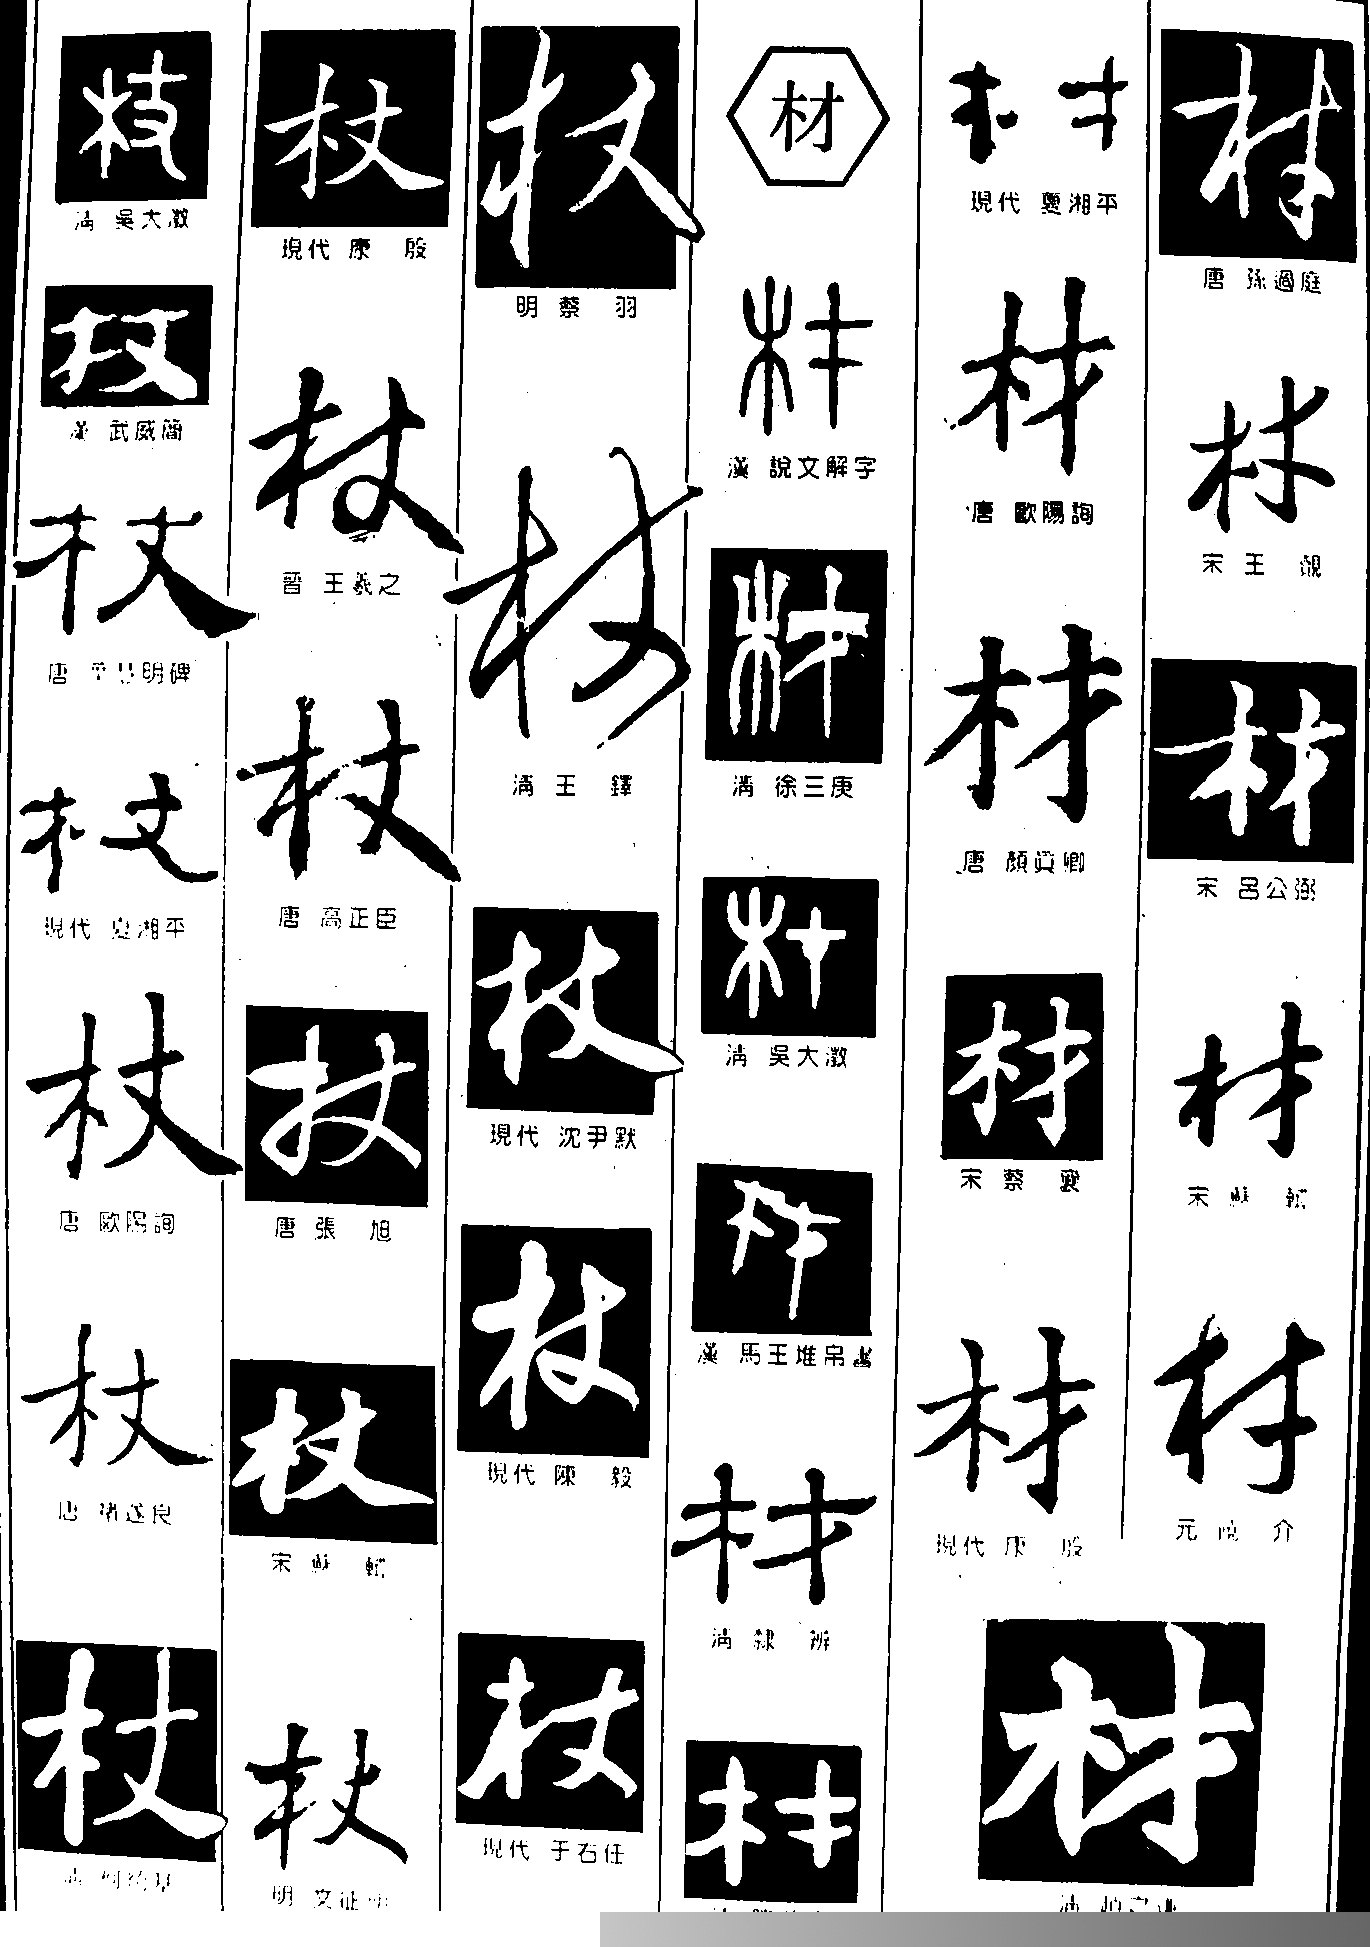 杖
清 吳大澂
杖
漢 武威簡
杖
唐 明碑
杖
現代 夏湘平
杖
唐 歐陽詢
杖
唐 褚遂良
杖
杖
現代 康 殷
杖
晉 王羲之
杖
唐 高正臣
杖
唐 張 旭
杖
宋 蘇 軾
杖
明 文征明
杖
明 蔡 羽
杖
清 王 鐸
杖
現代 沈尹默
杖
現代 陳 毅
杖
現代 于右任
材
材
漢 說文解字
材
清 徐三庚
材
清 吳大澂
材
漢 馬王堆帛書
材
清 隸 辨
材
材
現代 夏湘平
材
唐 歐陽詢
材
唐 顏真卿
材
宋 蔡 襄
材
現代 康 殷
材
材
唐 孫過庭
材
宋 王 覿
材
宋 呂公弼
材
宋 蘇 軾
材
元 介